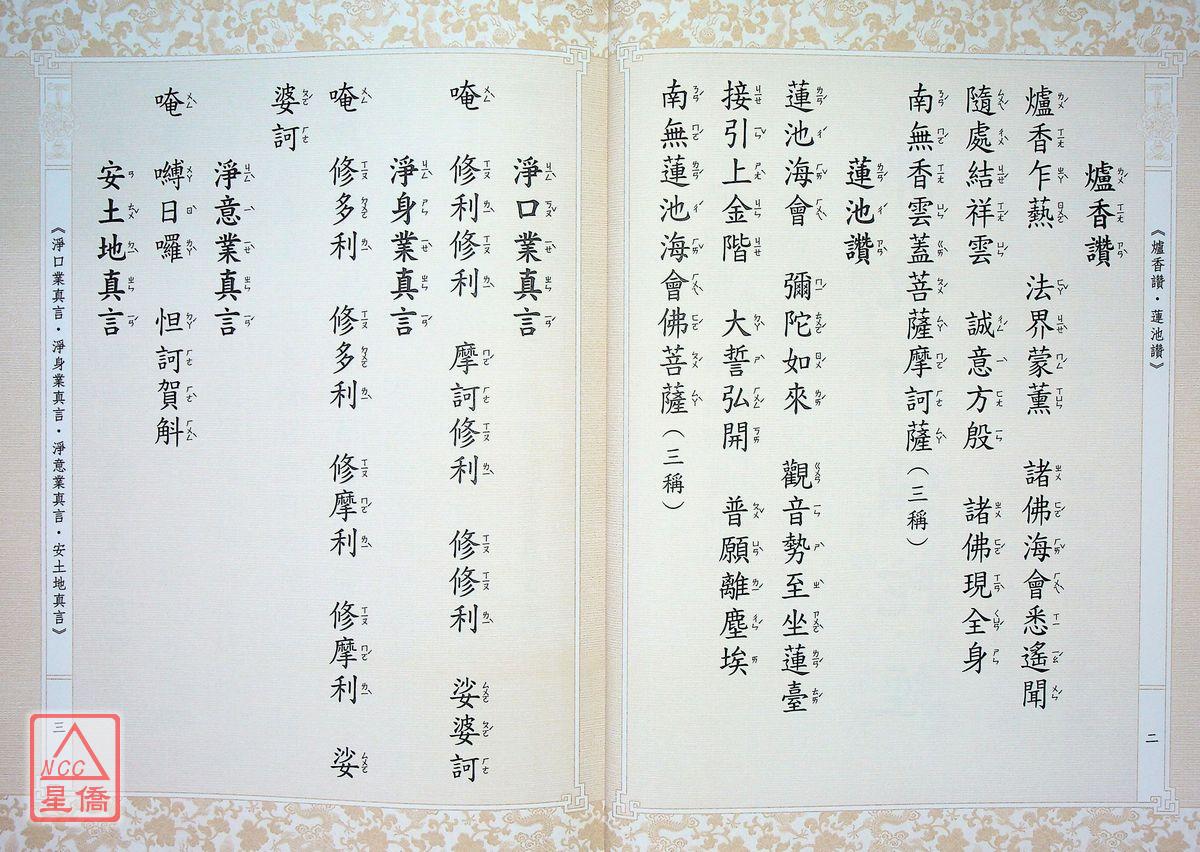 《爐香讚·蓮池讚》
二
爐香讚
爐香乍爇　法界蒙薰　諸佛海會悉遙聞
隨處結祥雲　誠意方殷　諸佛現全身
南無香雲蓋菩薩摩訶薩（三稱）
蓮池讚
蓮池海會　彌陀如來　觀音勢至坐蓮臺
接引上金階　大誓弘開　普願離塵埃
南無蓮池海會佛菩薩（三稱）
淨口業真言
唵　修利修利　摩訶修利　修修利　娑婆訶
淨身業真言
唵　修多利　修多利　修摩利　修摩利　娑
婆訶
淨意業真言
唵　嚩日囉　怛訶賀斛
安土地真言
《淨口業真言·淨身業真言·淨意業真言·安土地真言》
三
NCC
星僑